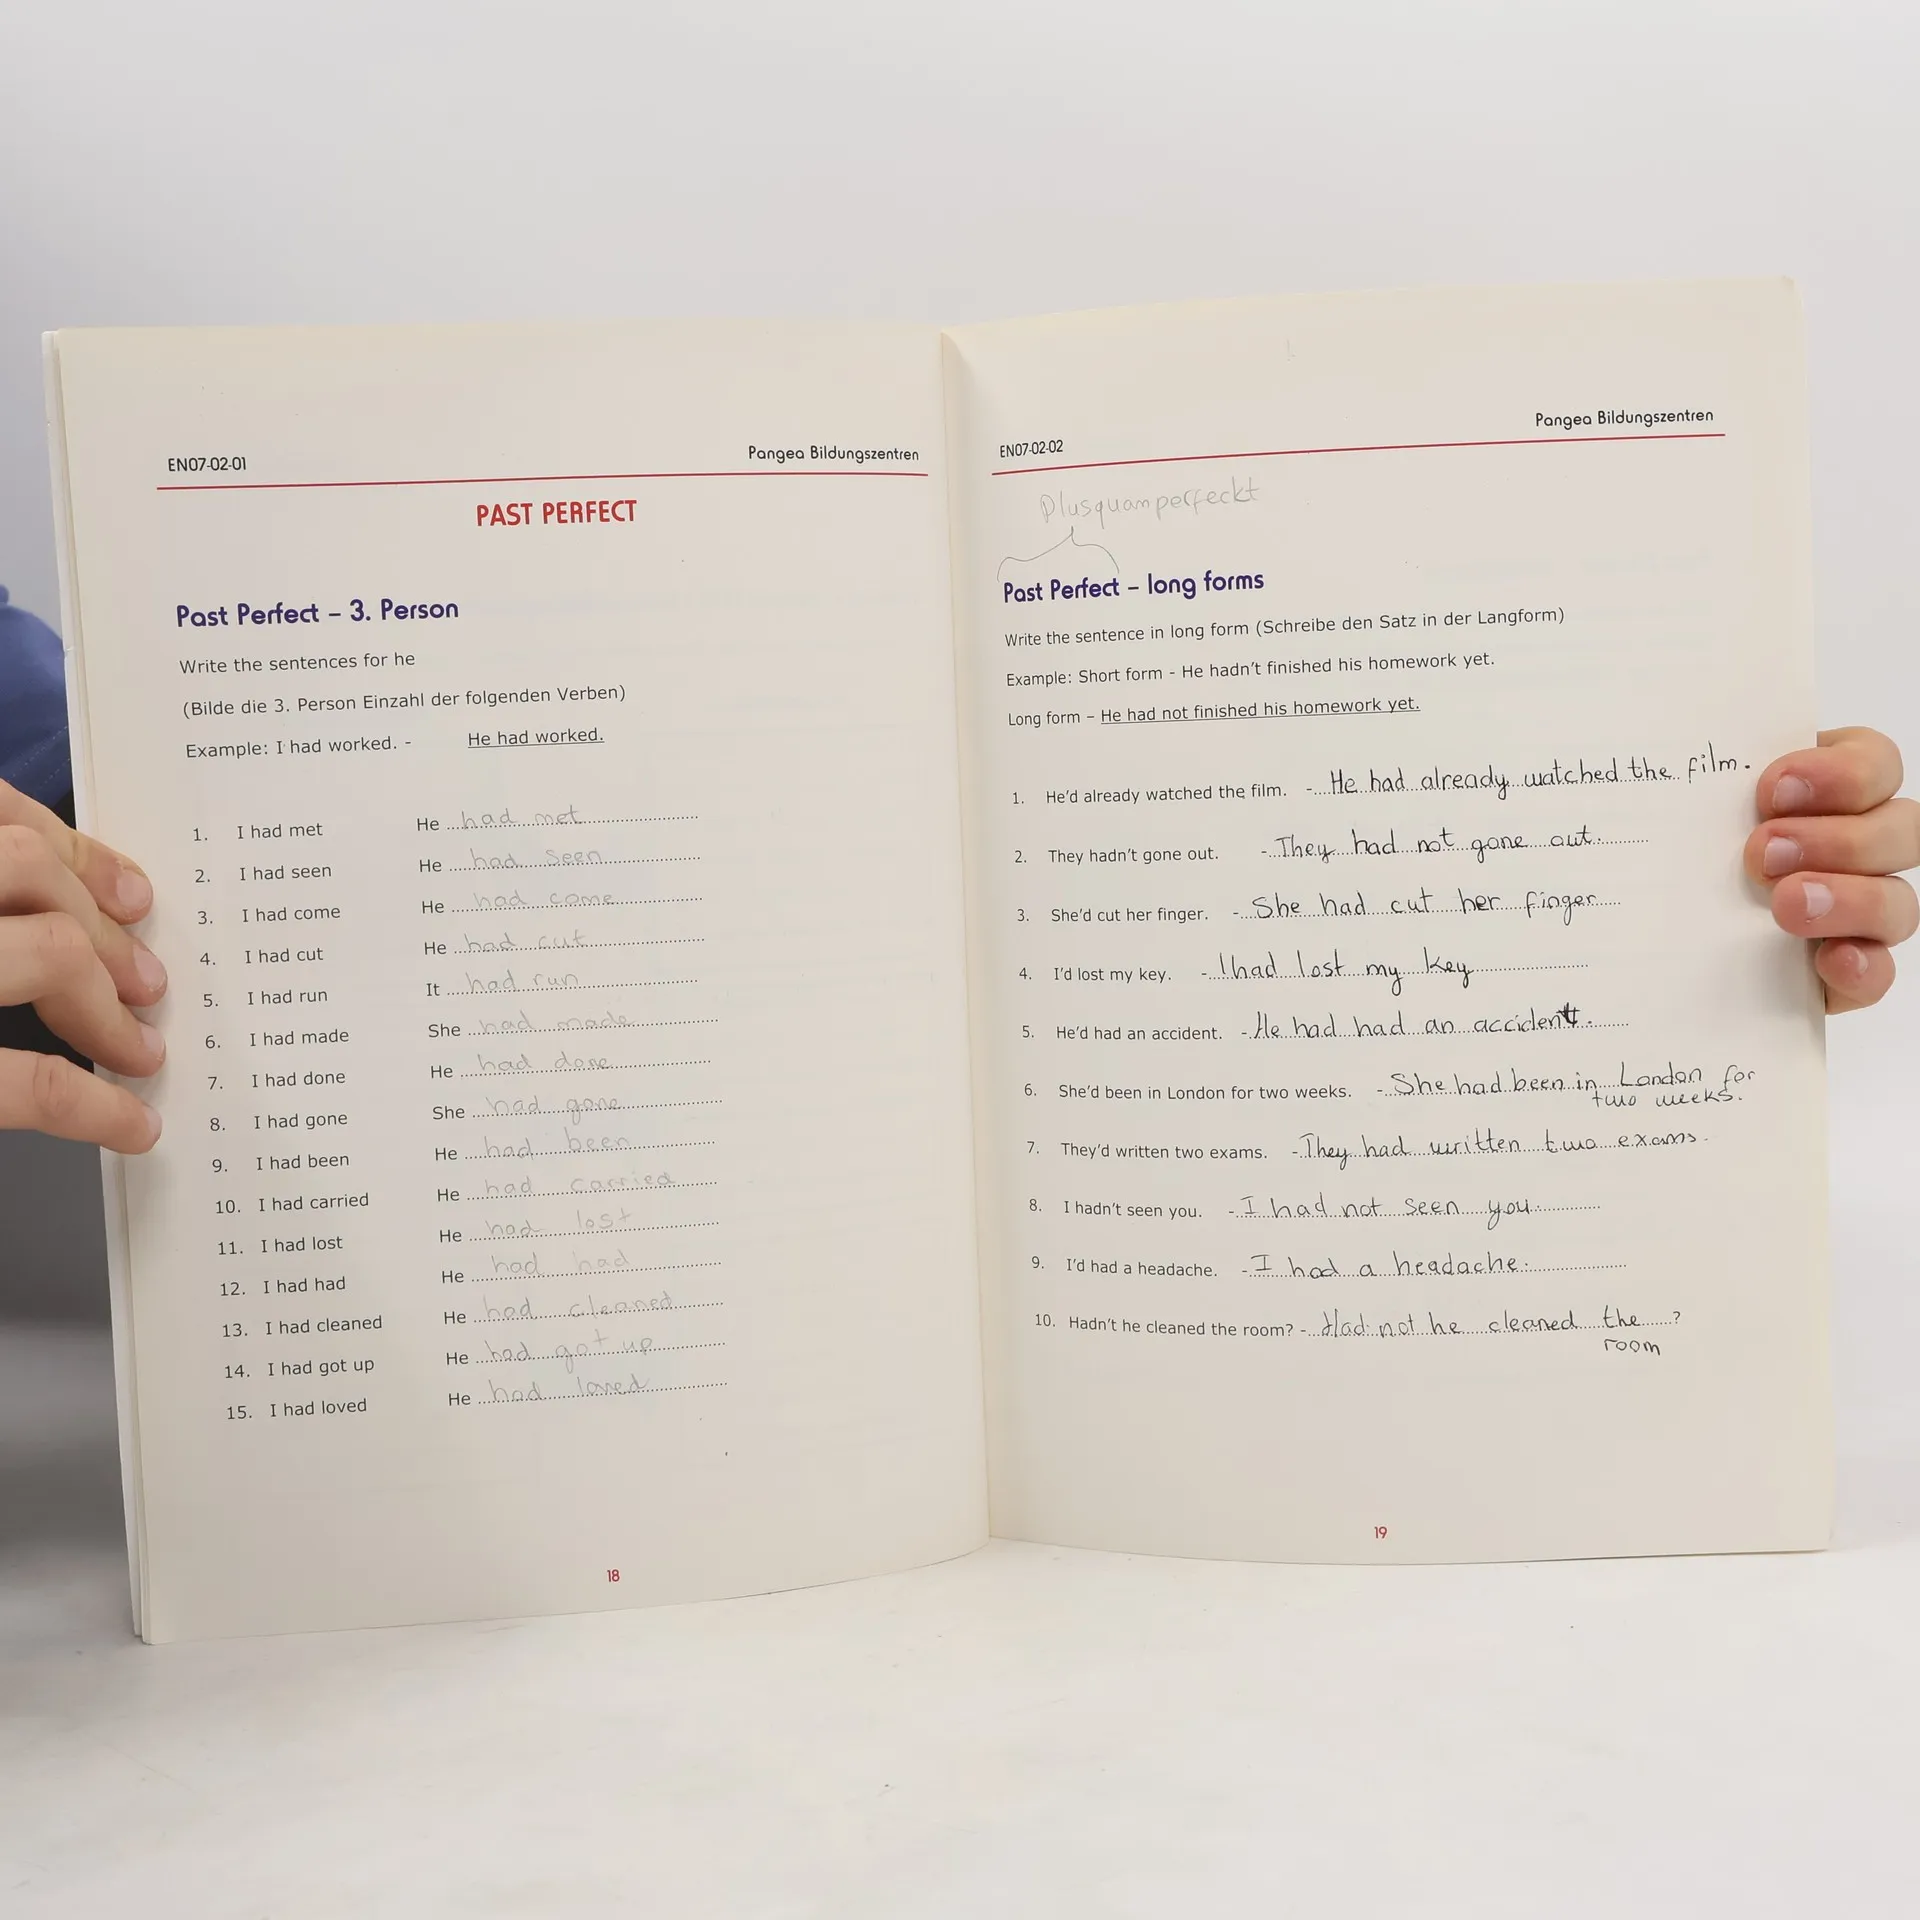 EN07-02-01 Pangea Bildungszentren
PAST PERFECT
Past Perfect – 3. Person
Write the sentences for he
(Bilde die 3. Person Einzahl der folgenden Verben)
Example: I had worked. - He had worked.
1. I had met He had met
2. I had seen He had seen
3. I had come He had come
4. I had cut He had cut
5. I had run It had run
6. I had made She had made
7. I had done He had done
8. I had gone She had gone
9. I had been He had been
10. I had carried He had carried
11. I had lost He had lost
12. I had had He had had
13. I had cleaned He had cleaned
14. I had got up He had got up
15. I had loved He had loved
18
EN07-02-02 Pangea Bildungszentren
Plusquamperfeckt
Past Perfect – long forms
Write the sentence in long form (Schreibe den Satz in der Langform)
Example: Short form - He hadn't finished his homework yet.
Long form – He had not finished his homework yet.
1. He'd already watched the film. - He had already watched the film.
2. They hadn't gone out. - They had not gone out.
3. She'd cut her finger. - She had cut her finger
4. I'd lost my key. - I had lost my key
5. He'd had an accident. - He had had an accident.
6. She'd been in London for two weeks. - She had been in London for
two weeks.
7. They'd written two exams. - They had written two exams.
8. I hadn't seen you. - I had not seen you.
9. I'd had a headache. - I had a headache.
10. Hadn't he cleaned the room? - Had not he cleaned the ?
room
19